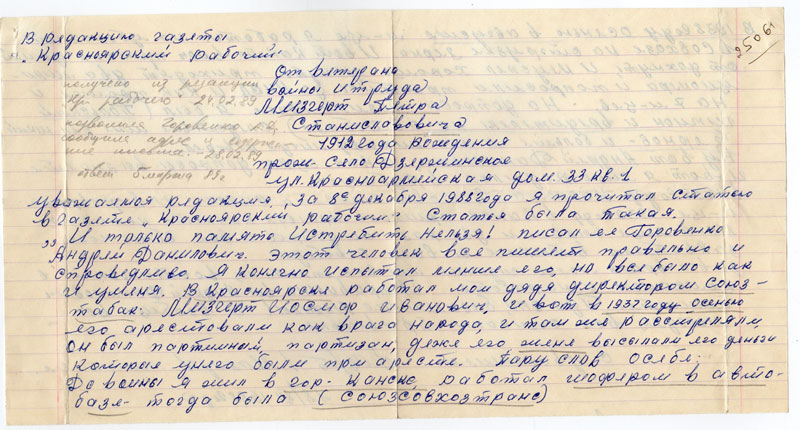 В редакцию газеты
„Красноярский рабочий"
От ветерана
войны и труда
Мизгерт Петра
Станиславовича
1912 года рождения
прож- Село Дзержинское
ул. Красноармейская дом. 33 кв. 1
получено из редакции
"Кр. рабочего" 24.02.89
позвонила Горовенко А.Д.
сообщила адрес и
письма. 28.02.89
ответ 5 марта 89г
уважаемая редакция, за 8е декабря 1988 года я прочитал статью
в газете „Красноярский рабочий" статья была такая.
„И только память истребить нельзя! писал ее Горовенко
Андрей Данилович. этот человек все пишет правельно и
справедливо. Я конечно испытал менше его, но все было как
и уменя. В Красноярске работал мой дядя директором Союз-
табак. Мизгерт Иосиф Иванович, и вот в 1937 году осенью
его арестовали как врага народа, и там же расстреляли
он был партийный, партизан, даже его жене высылали его деньги
которые унего были при аресте. Пару слов осебе:
До войны я жил в гор- Канске, работал шофером в авто-
базе- тогда была (союзсовхозтранс)